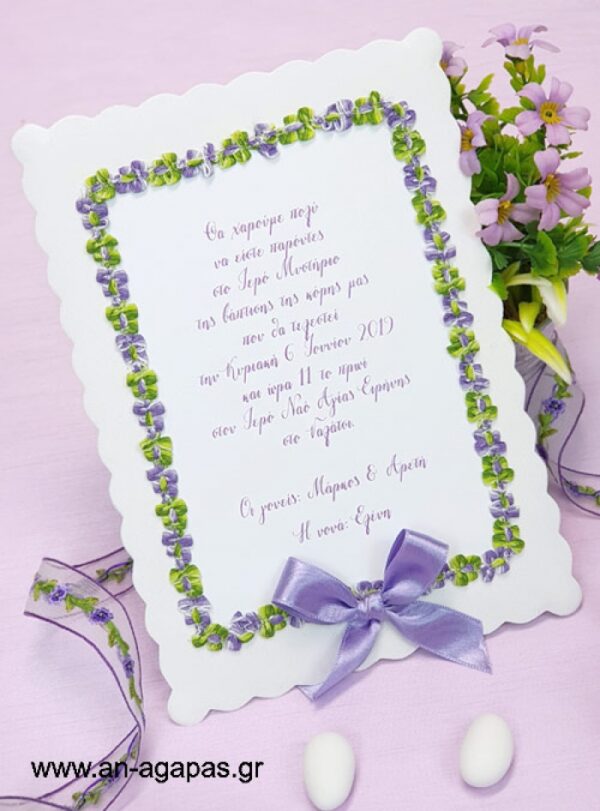 Θα χαρούμε πολύ
να είστε παρόντες
στο Ιερό Μυστήριο
της βάπτισης της κόρης μας
που θα τελεστεί
την Κυριακή 6 Ιουνίου 2019
και ώρα 11 το πρωί
στον Ιερό Ναό Αγίας Ειρήνης
στο Γαλάτσι.
Οι γονείς: Μάρκος & Αρετή
Η νονά: Ελένη
www.an-agapas.gr